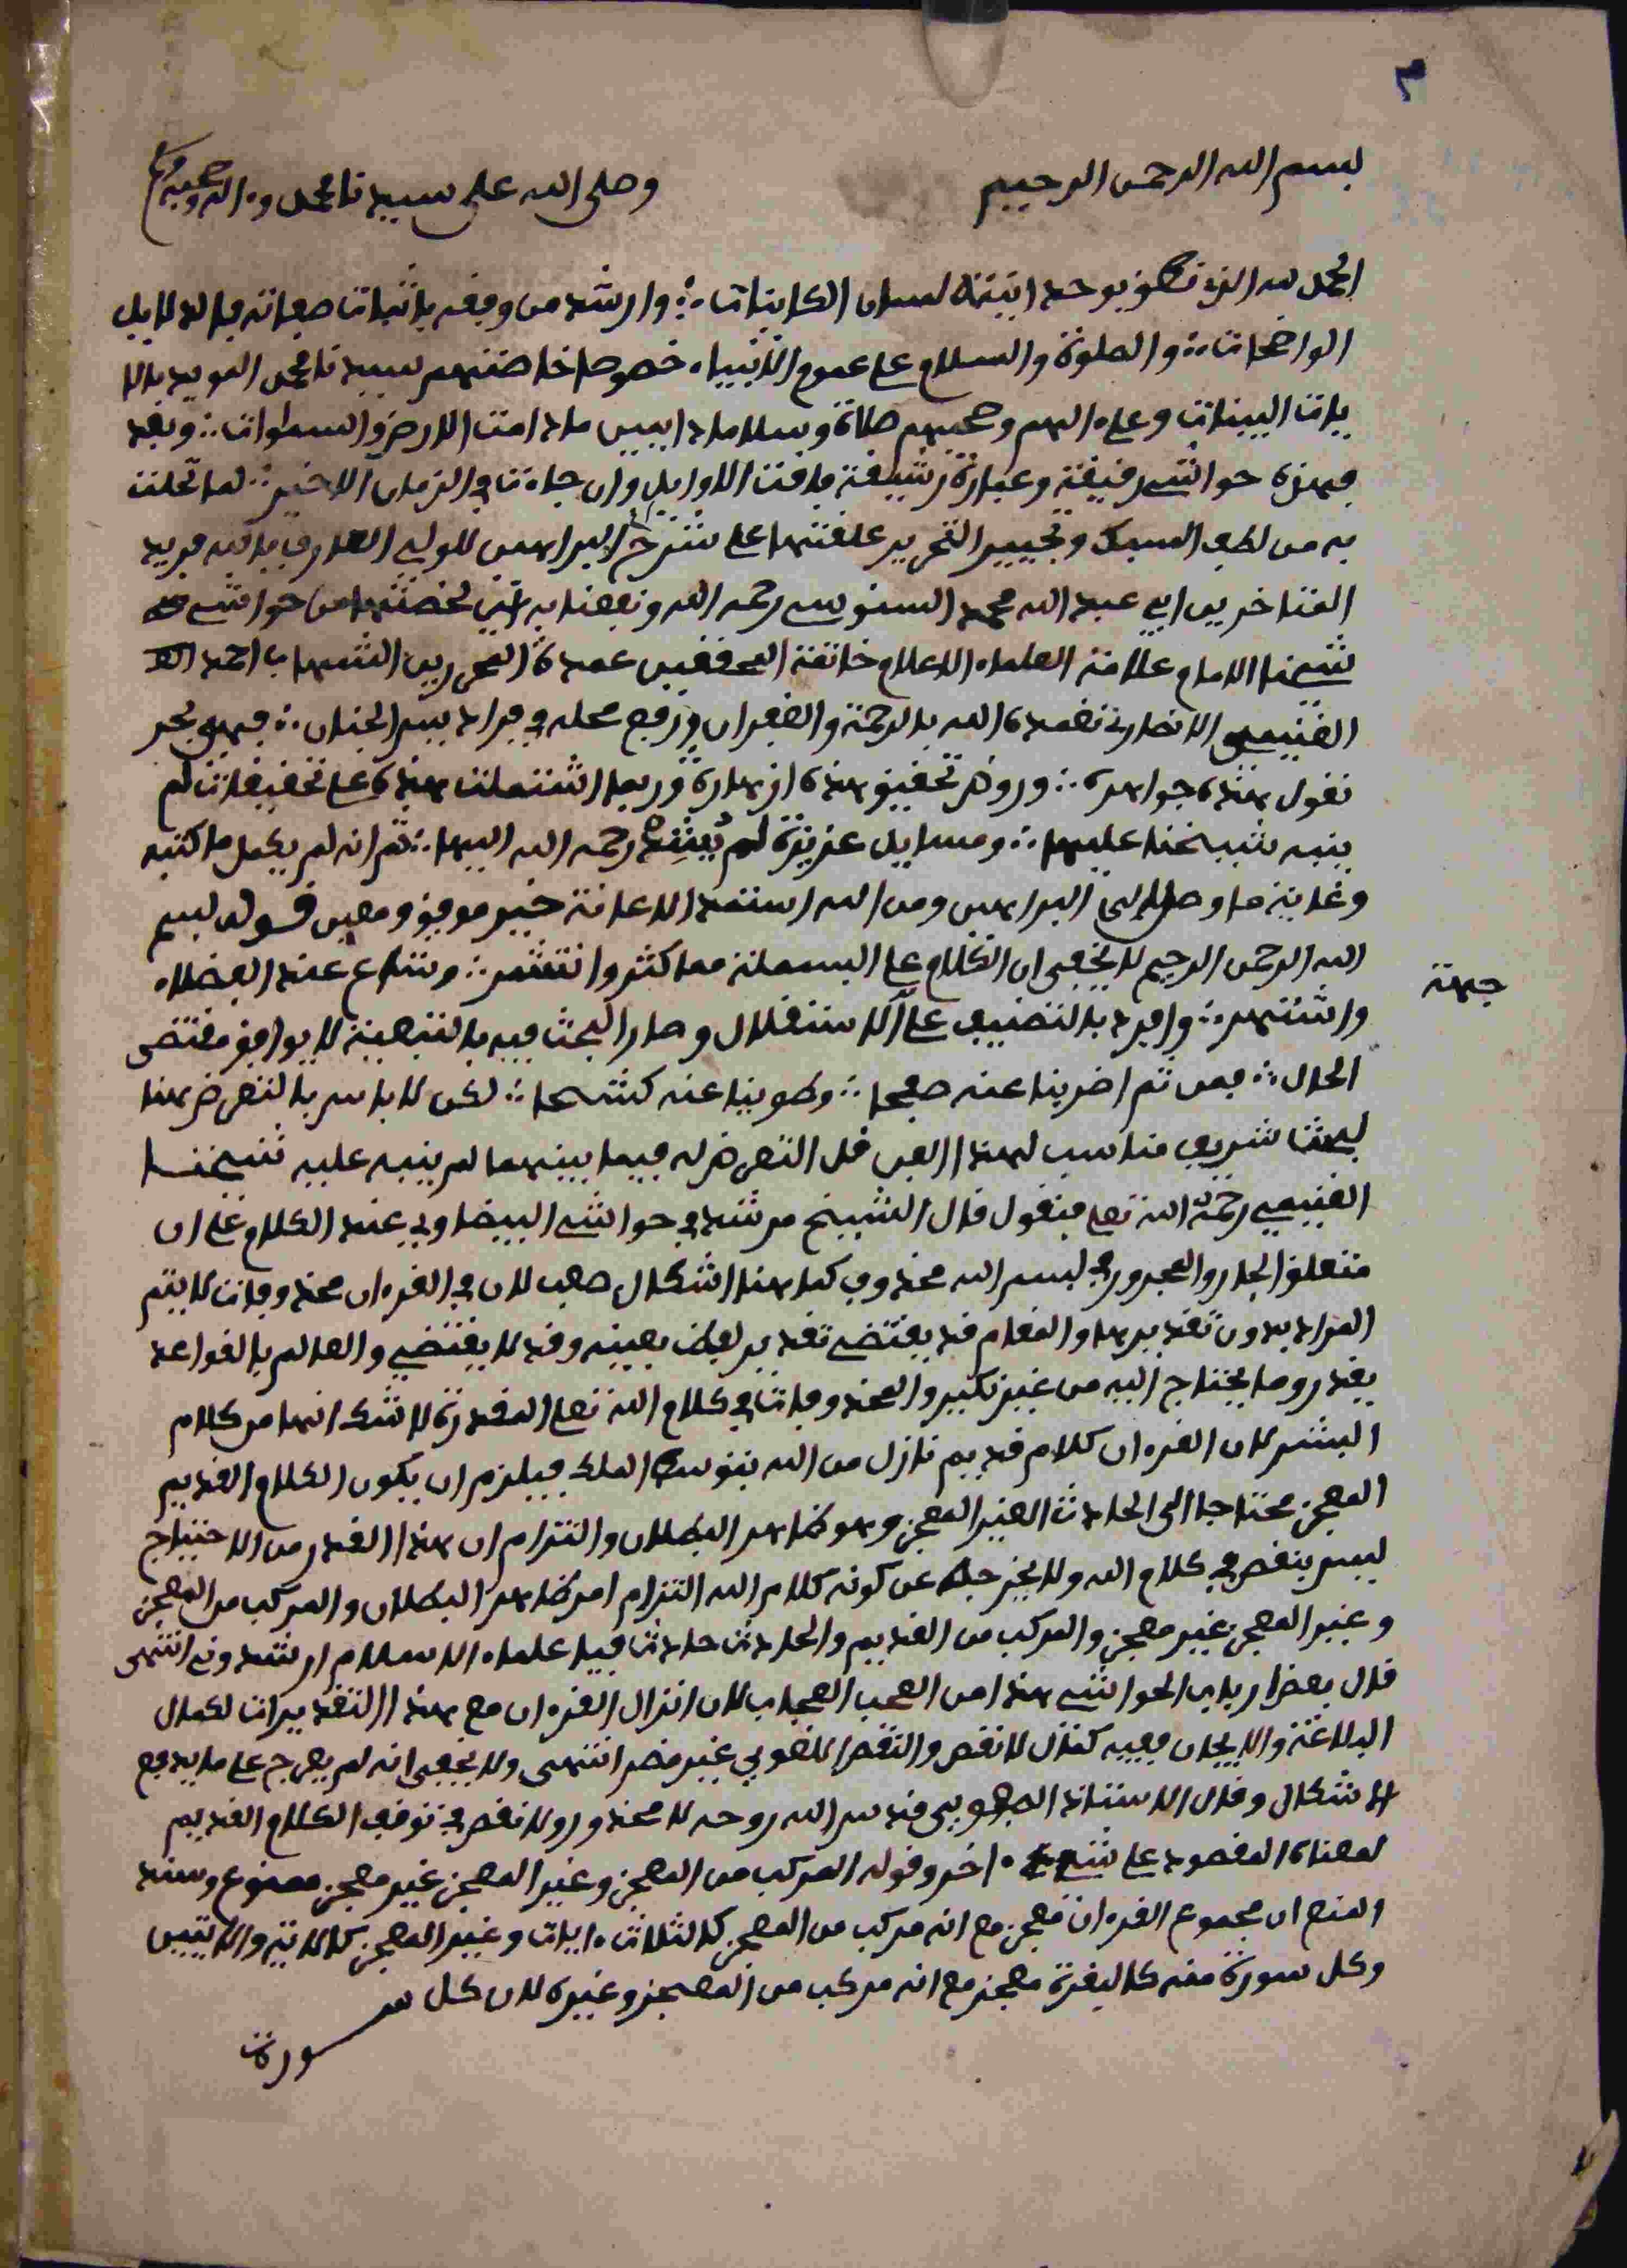 ٣
بسم الله الرحمن الرحيم وصلى الله على سيدنا محمد وءاله وصحبه
الحمد لله الذي نطق بوحدانيته لسان الكاينات ؞ وارشد من وفقه باثبات صفاته بالدلايل
الواضحات ؞ والصلوة والسلام على عموم الانبياء خصوصا خاصتهم سيدنا محمد المويد بالا
يات البينات وعلى ءالهم وصحبهم صلاة وسلاما دايمين ما دامت الارض والسماوات ؞ وبعد
فهذه حواشي رقيقة وعبارة رشيقة فاقت الاوايل وان جاءت في الزمان الاخير ؞ لما تحلت
به من لطف السبك وتحبير التحرير علقتها على شرح ام البراهين للولي العارف بالله فريد
المتاخرين ابي عبد الله محمد السنوسي رحمه الله ونفعنا به ءامين لخصتها من حواشي
شيخنا الامام علامة العلماء الاعلام خاتمة المحققين عمدة النحريرين الشهاب احمد
الغنيمي الانصاري تغمده الله بالرحمة والغفران ورفع محله في فراديس الجنان ؞ فهي بحر
نقول هذه جواهره ؞ وروض تحقيق هذه ازهاره وربما اشتملت هذه على تحقيقات لم
ينبه شيخنا عليها ؞ ومسايل عزيزة لم رحمه الله اليها ؞ ثم انه لم يكمل ما كتبه
وغاية ما وصل الى البراهين ومن الله استمد الاعانة خير موفق ومعين قوله بسم
الله الرحمن الرحيم لا يخفى ان الكلام على البسملة مما كثر وانتشر ؞ وشاع عند الفضلاء
واشتهر ؞ وافرد بالتصنيف على الاستقلال وصار البحث فيه بالتبعية لا يوافق مقتضى
جهة
الحال ؞ فمن ثم اضربنا عنه صفحا ؞ وطوينا عنه كشحا ؞ لكن لا باس بالتعرض هنا
لبحث شريف مناسب لهذا الفن قل التعرض له فيما بينهما لم ينبه عليه شيخنا
الغنيمي رحمه الله تعلى فنقول قال الشيخ مرشد في حواشي البيضاوي عند الكلام على ان
متعلق الجار والمجرور في بسم الله محذوف كما هنا اشكال صعب لان في القرءان محذوفات لا يتم
المراد بدون تقديرها والمقام قد يقتضي تقدير لفظ بعينه وقد لا يقتضي والعالم بالقواعد
يقدر وما يحتاج اليه من غير نكير والمحذوفات في كلام الله تعلى المقدرة لا شك انها من كلام
البشر لان القرءان كلام قديم نازل من الله بتوسط الملك فيلزم ان يكون الكلام القديم
المعجز محتاجا الى الحادث الغير المعجز وهو ظاهر البطلان والتزام ان هذا القدر من الاحتياج
ليس ينقص في كلام الله ولا يخرجه عن كونه كلام الله التزام امر ظاهر البطلان والمركب من المعجز
وغير المعجز غير معجز والمركب من القديم والحادث حادث فيا علماء الاسلام ارشدوني انتهى
قال بعض ارباب الحواشي هذا من العجب العجاب لان انزال القرءان مع هذا التقديرات لكمال
البلاغة والايجاز ففيه كمال لا نقص والنقص اللغوي غير مضر انتهى ولا يخفى انه لم يعرج على ما يدفع
الاشكال وقال الاستاذ الصفوي قدس الله روحه لا محذور ولا نقص في توقف الكلام القديم
لمعناه المقصود على شيء ءاخر وقوله المركب من المعجز وغير المعجز غير معجز ممنوع وسند
المنع ان مجموع القرءان معجز مع انه مركب من المعجز كالثلاث ءايات وغير المعجز كالاية والايتين
وكل سورة منه كالبقرة معجز مع انه مركب من المعجز وغيره لان كل سـ
سورة